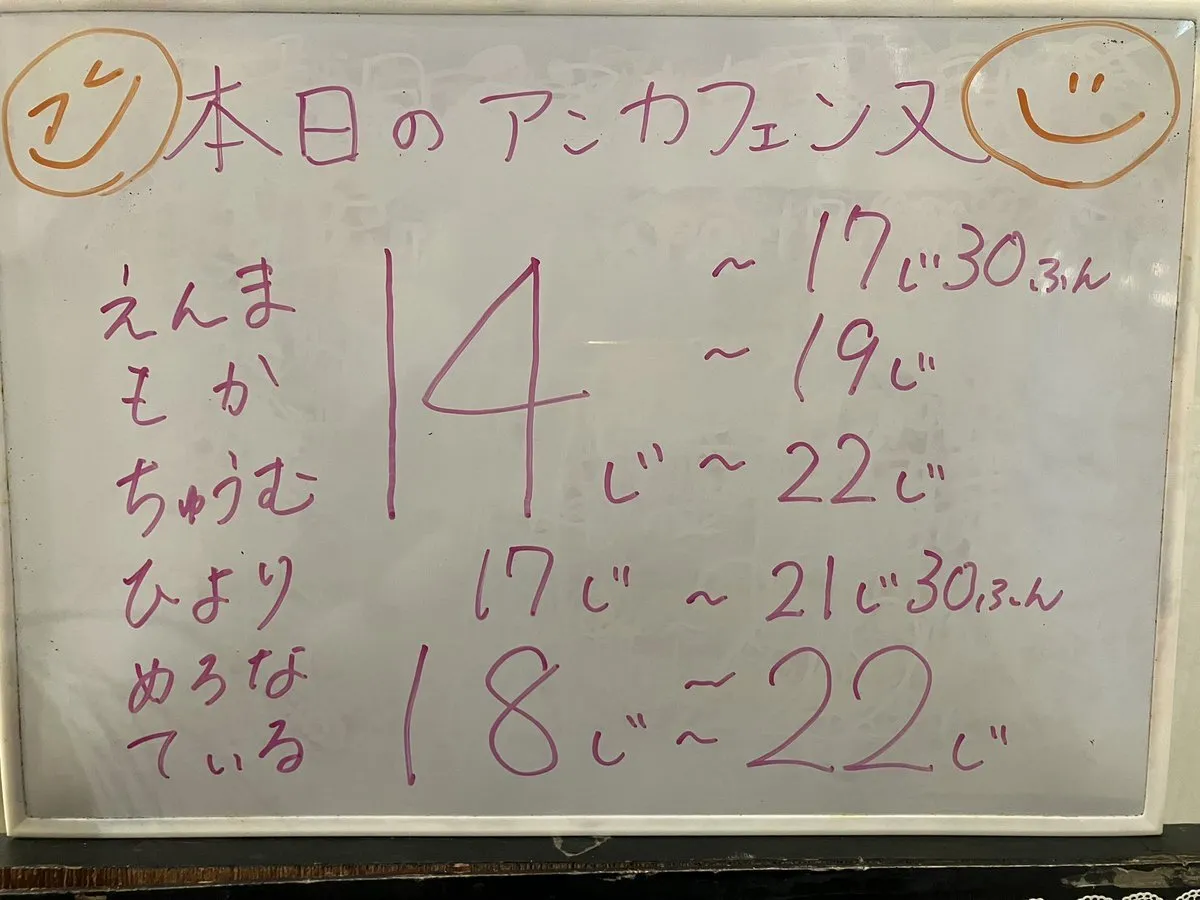 本日のアンカフェンヌ
えんま ～17じ30ふん
もか ～19じ
ちゅうむ 14じ～22じ
ひより 17じ～21じ30ふん
めろな ～
てぃる 18じ～22じ